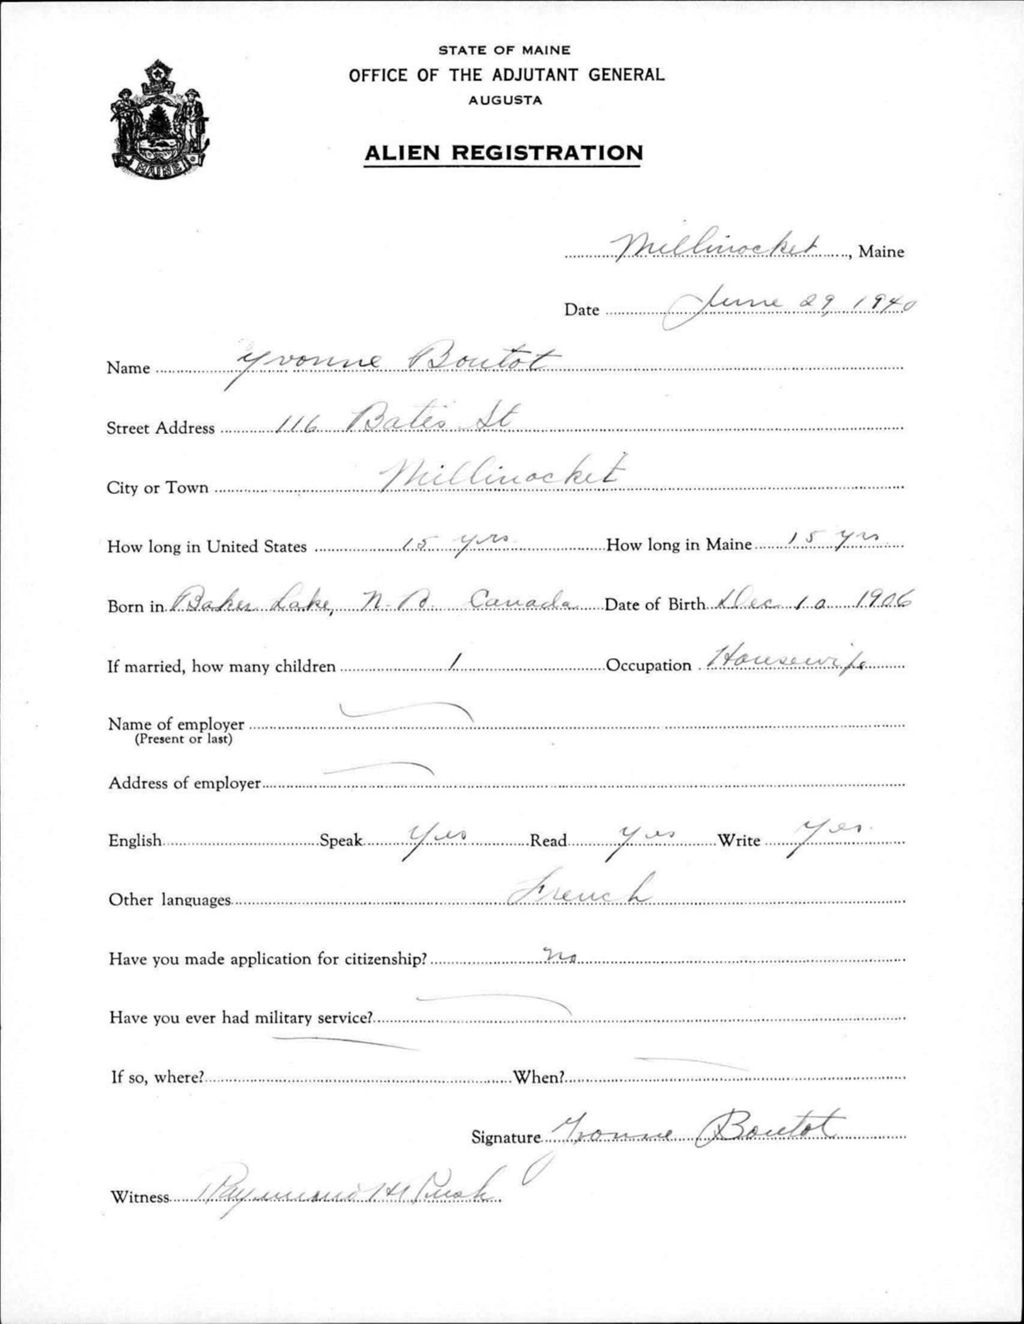 STATE OF MAINE
OFFICE OF THE ADJUTANT GENERAL
AUGUSTA
ALIEN REGISTRATION
MAINE
Millinocket, Maine
Date June 29, 1940
Name Yvonne Boutot
Street Address 116 Bates St
City or Town Millinocket
How long in United States 15 yrs How long in Maine 15 yrs
Born in Baker Lake, N. B. Canada Date of Birth Dec 10 1906
If married, how many children 1 Occupation Housewife
Name of employer
(Present or last)
Address of employer
English Speak Yes Read Yes Write Yes.
Other languages French
Have you made application for citizenship? No
Have you ever had military service?
If so, where? When?
Signature Yvonne Boutot
Witness Raymond H